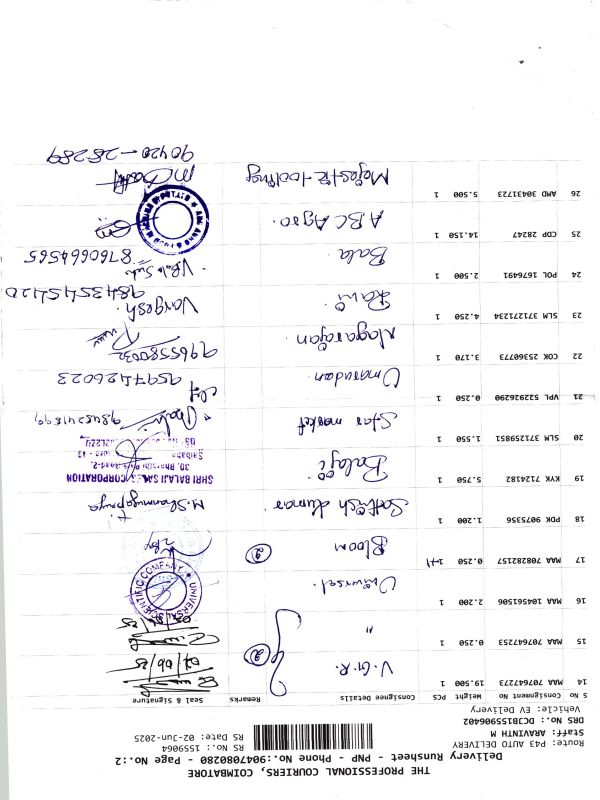 THE PROFESSIONAL COURIERS, COIMBATORE
Delivery Runsheet - PNP - Phone No.:9047080280 - Page No.:2
Route: P43 AUTO DELIVERY
Staff: ARAVINTH M
DRS No.: DCJB155906402
Vehicle: EV Delivery
RS No.: 1559064
RS Date: 02-Jun-2025
S No Consignment No Weight PCS Consignee Details Remarks Seal & Signature
14 MAA 707647273 19.500 1 V.G.R. (2) 02/06/25
15 MAA 707647253 0.250 1 "
16 MAA 104561506 2.200 1 Universel. UNIVERSAL SCIENTIFIC COMPANY
17 MAA 708282157 0.250 1+1 Bloom (2)
18 PDK 9075356 1.200 1 Sathish Kumar M. Shanmugapriya
19 KYK 7124182 5.750 1 Balaji SHRI BALAJI SALES CORPORATION
20 SLM 371259851 1.550 1 Star market
21 VPL 529226290 0.250 1 Umaradan 9597426023
22 COK 25360773 3.170 1 Nagarajan 9965580032
23 SLM 371271234 4.250 1 Ravi Vangesh. 9843545420
24 POL 1676491 2.500 1 Bala 8760664565
25 CDP 28247 14.150 1 ABC Agro.
26 AMD 30431723 5.500 1 Majestic tooling
90420-28289